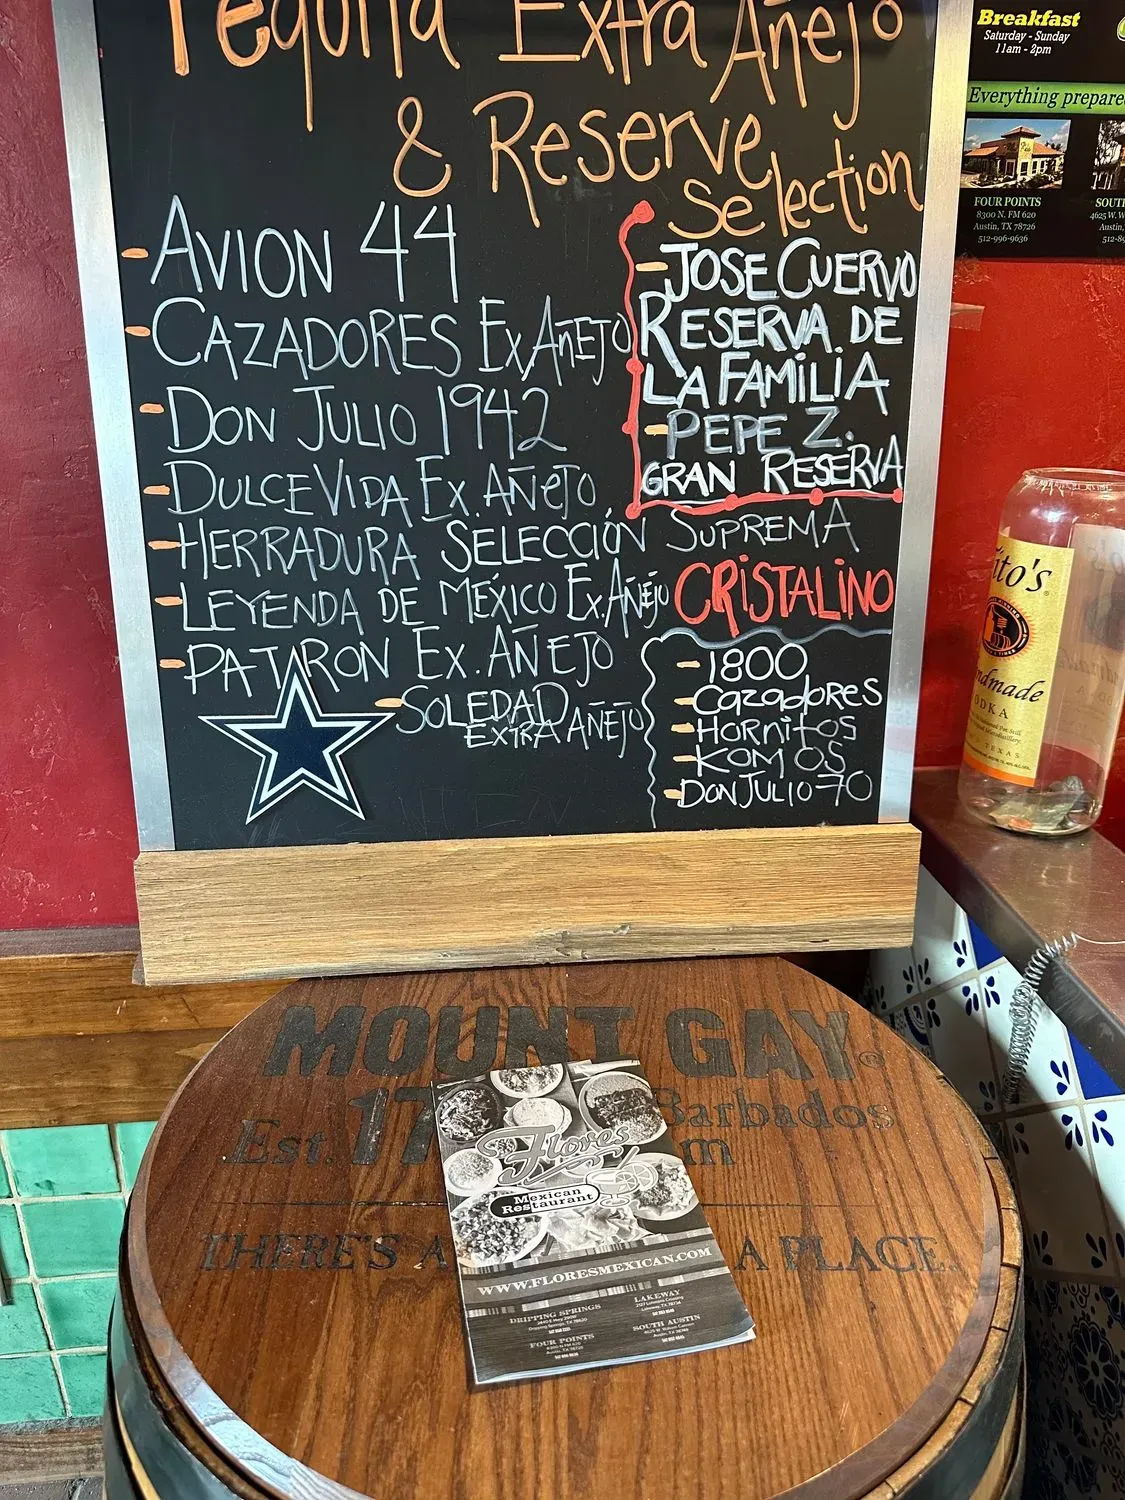 Tequila Extra Añejo
& Reserve
Selection
- AVION 44
- CAZADORES Ex AÑEJO
- DON JULIO 1942
- DULCE VIDA Ex. AÑEJO
- HERRADURA SELECCIÓN SUPREMA
- LEYENDA DE MÉXICO Ex. AÑEJO
- PATRON Ex. AÑEJO
- SOLEDAD
EXTRA AÑEJO
- JOSE CUERVO
RESERVA DE
LA FAMILIA
- PEPE Z.
GRAN RESERVA
CRISTALINO
- 1800
- Cazadores
- Hornitos
- KOMOS
- DON JULIO 70
Breakfast
Saturday - Sunday
11am - 2pm
Everything prepare
FOUR POINTS
8300 N. FM 620
Austin, TX 78726
512-996-9636
SOUT
4625 W. W
Austin,
512-89
ito's
ndmade
ODKA
TEXAS
MOUNT GAY®
Est. 17 Barbados
m
THERE'S A A PLACE.
Flores
Mexican
Restaurant
WWW.FLORESMEXICAN.COM
DRIPPING SPRINGS
LAKEWAY
FOUR POINTS
SOUTH AUSTIN